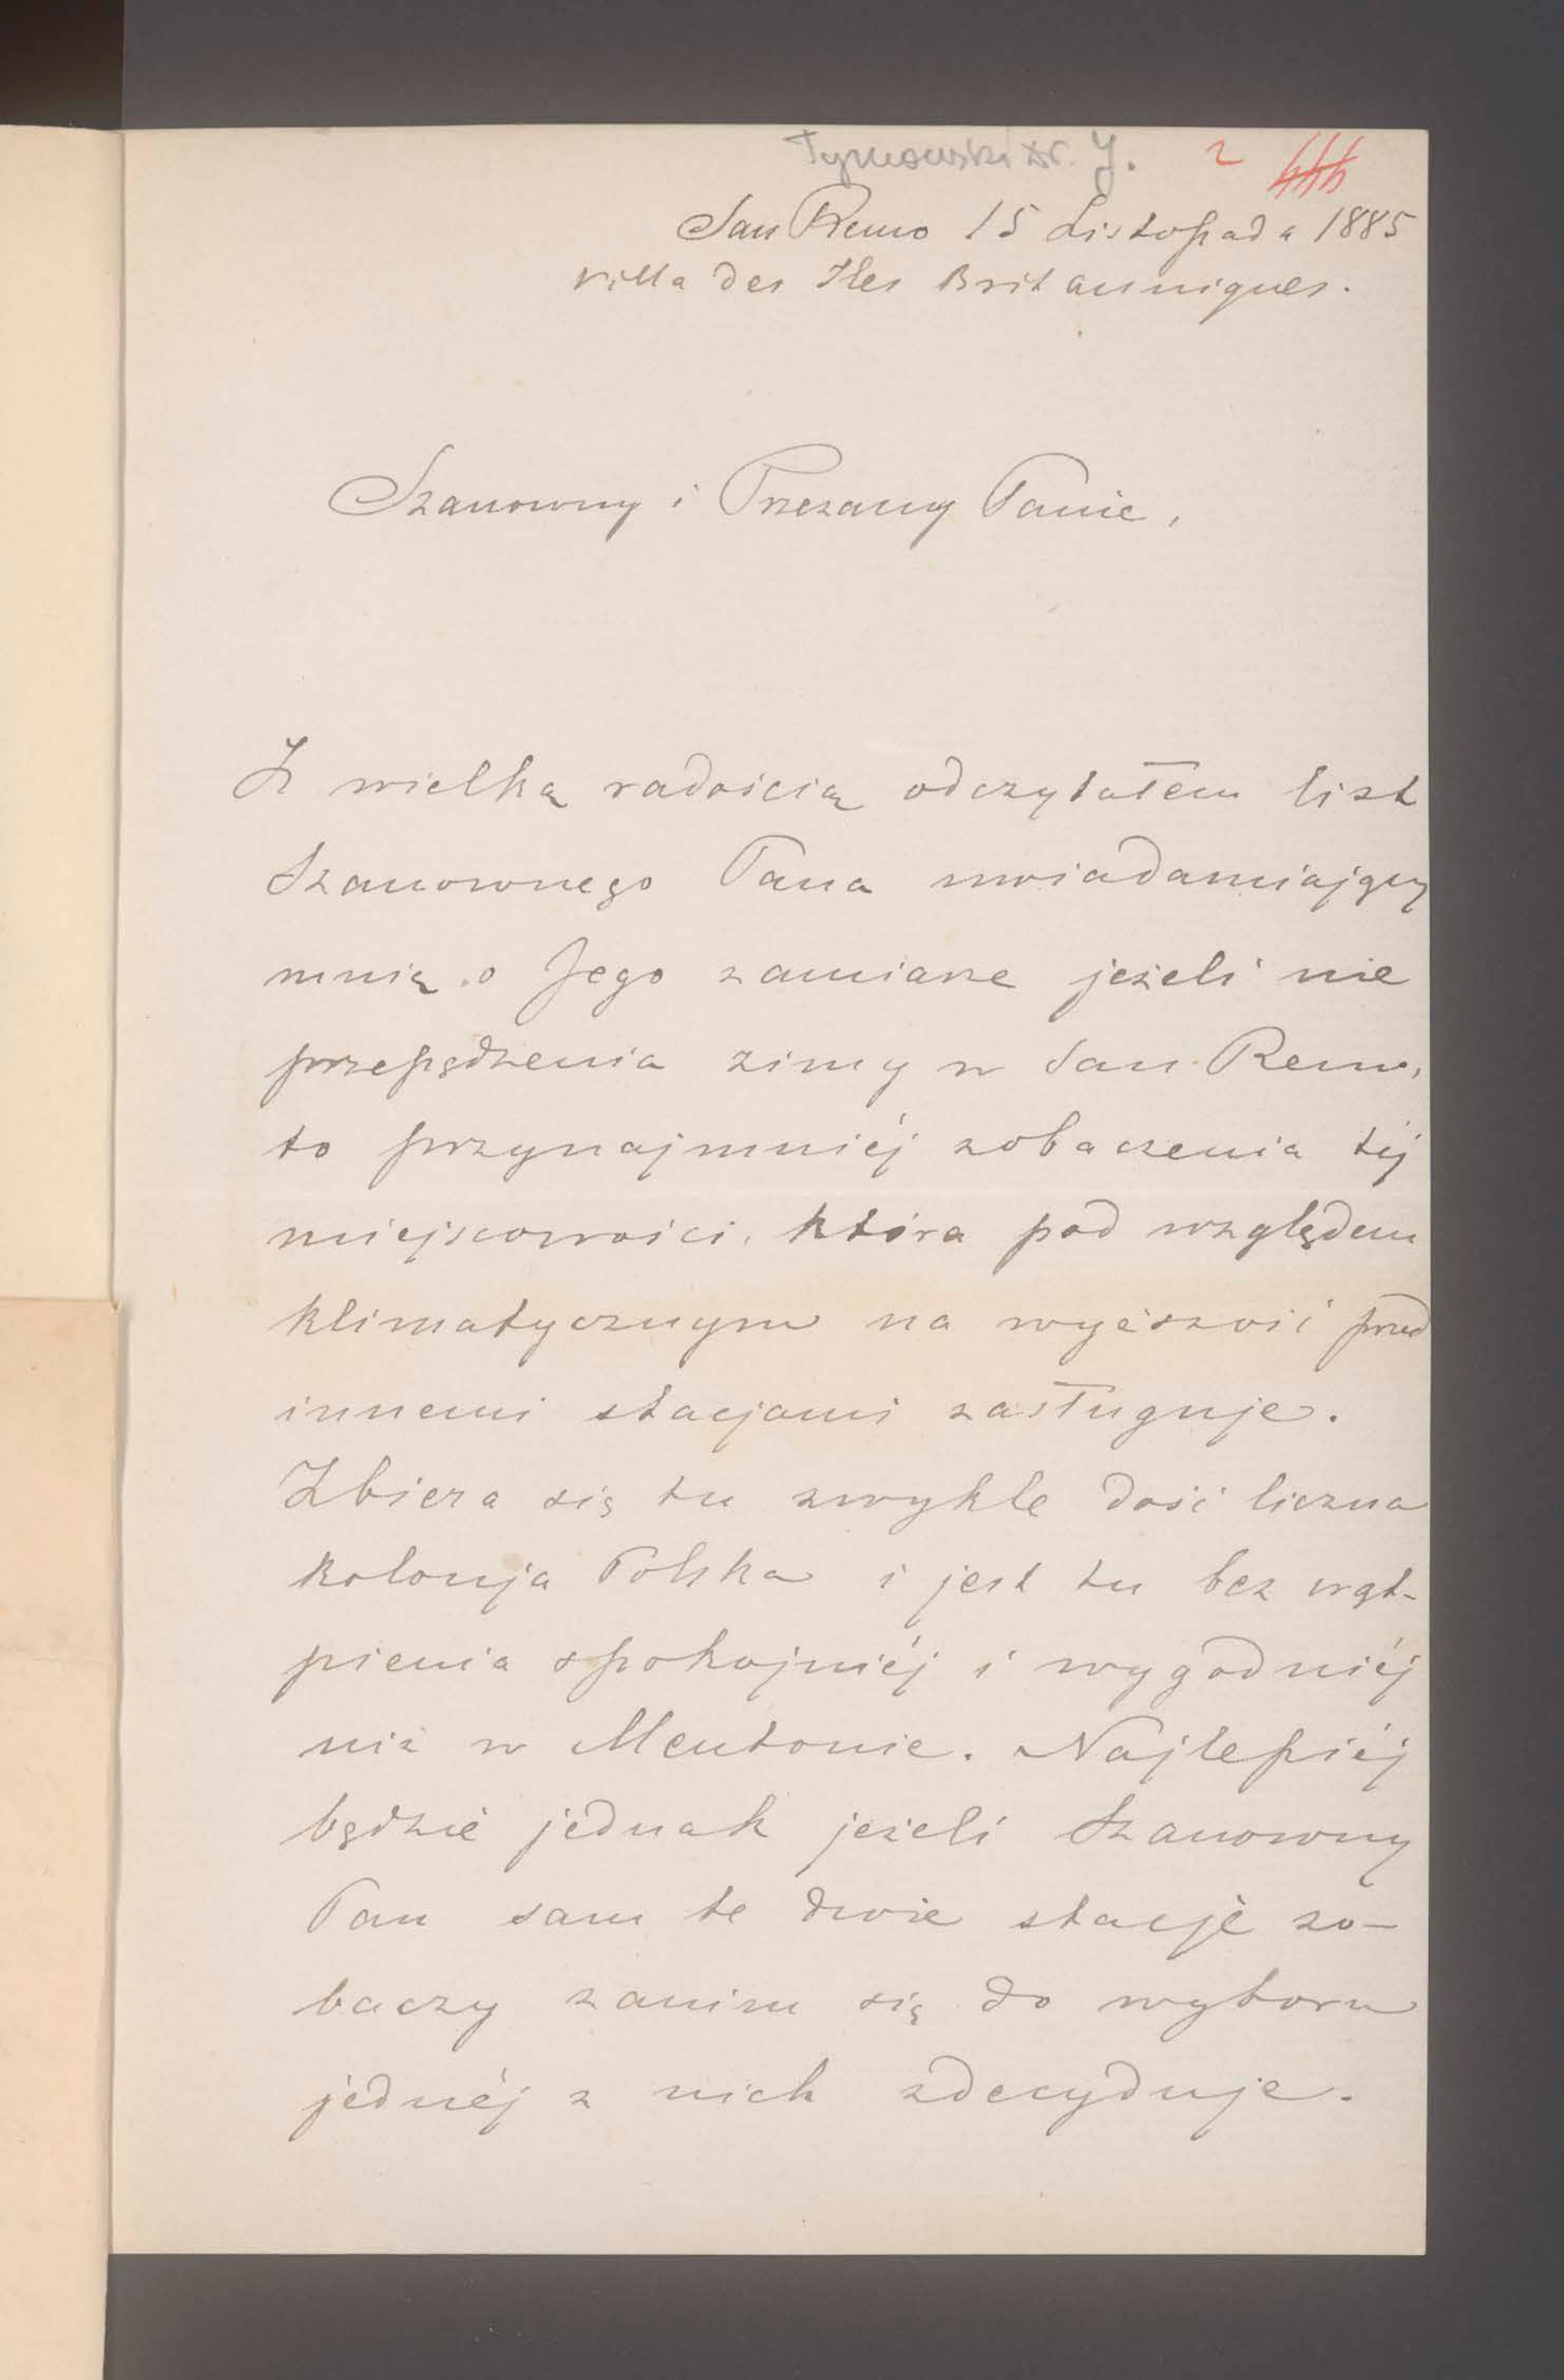 Tymowski Dr. J. 2 444
San Remo 15 Listopada 1885
Villa des Iles Britanniques.
Szanowny i Przezacny Panie,
Z wielką radością odczytałem list
Szanownego Pana uwiadamiający
mnię o Jego zamiarze jeżeli nie
przepędzenia zimy w San Remo,
to przynajmniéj zobaczenia téj
miejscowości, która pod względem
klimatycznym na wyższość przed
innemi stacjami zasługuje.
Zbiera się tu zwykle dość liczna
kolonja Polska i jest tu bez wąt-
pienia spokojniéj i wygodniéj
niż w Mentonie. Najlepiéj
będzie jednak jeżeli Szanowny
Pan sam te dwie stacje zo-
baczy zanim się do wyboru
jednéj z nich zdecyduje.